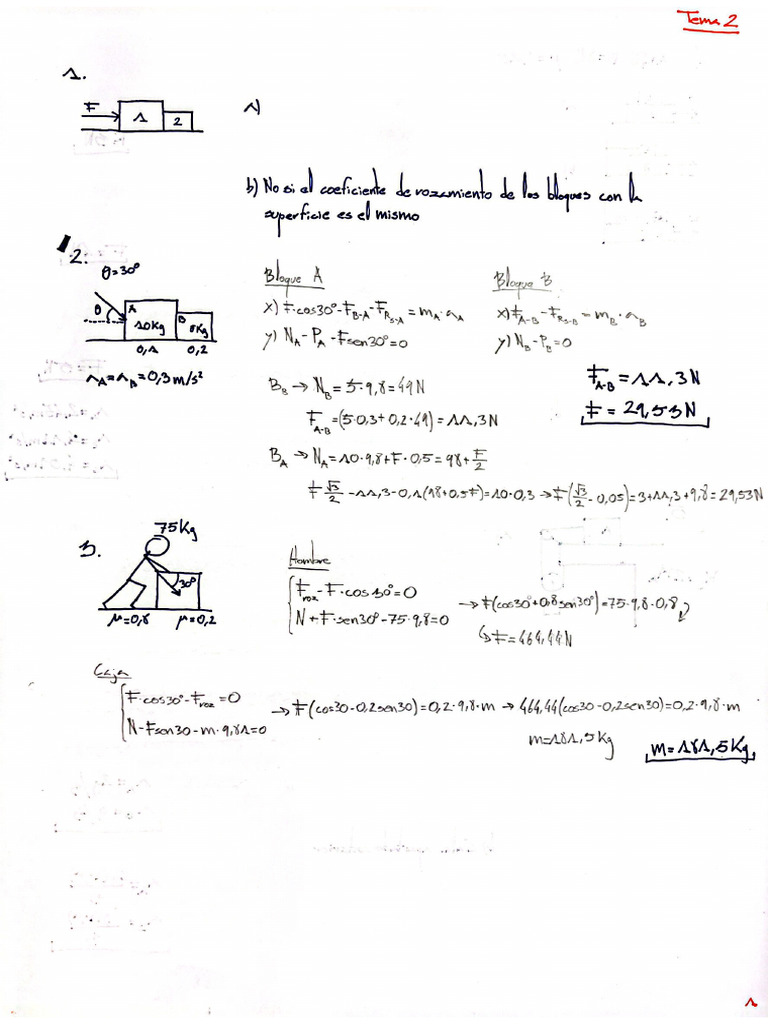 Tema 2
1.
F
1
2
a)
b) No si el coeficiente de rozamiento de los bloques con la
superficie es el mismo
2.
θ=30º
θ
A
10Kg
B
5Kg
0,1 0,2
a_A = a_B = 0,3 m/s²
Bloque A
x) F·cos30º - F_B-A - F_Rs-A = m_A · a_A
y) N_A - P_A - Fsen30º = 0
Bloque B
x) F_A-B - F_Rs-B = m_B · a_B
y) N_B - P_B = 0
B_B → N_B = 5·9,8 = 49N
F_A-B = (5·0,3 + 0,2·49) = 11,3N
B_A → N_A = 10·9,8 + F·0,5 = 98 + F/2
F √3/2 - 11,3 - 0,1(98 + 0,5F) = 10·0,3 → F(√3/2 - 0,05) = 3 + 11,3 + 9,8 = 29,53N
F_A-B = 11,3N
F = 29,53N
3.
75Kg
30º
μ=0,8 μ=0,2
Hombre
F_roz - F·cos30º = 0
N + F·sen30º - 75·9,8 = 0
→ F(cos30º + 0,8sen30º) = 75·9,8·0,8
↳ F = 464,44N
Caja
F·cos30º - F_roz = 0
N - Fsen30 - m·9,81 = 0
→ F(cos30 - 0,2sen30) = 0,2·9,8·m → 464,44(cos30 - 0,2sen30) = 0,2·9,8·m
m = 181,5Kg
m = 181,5Kg
1